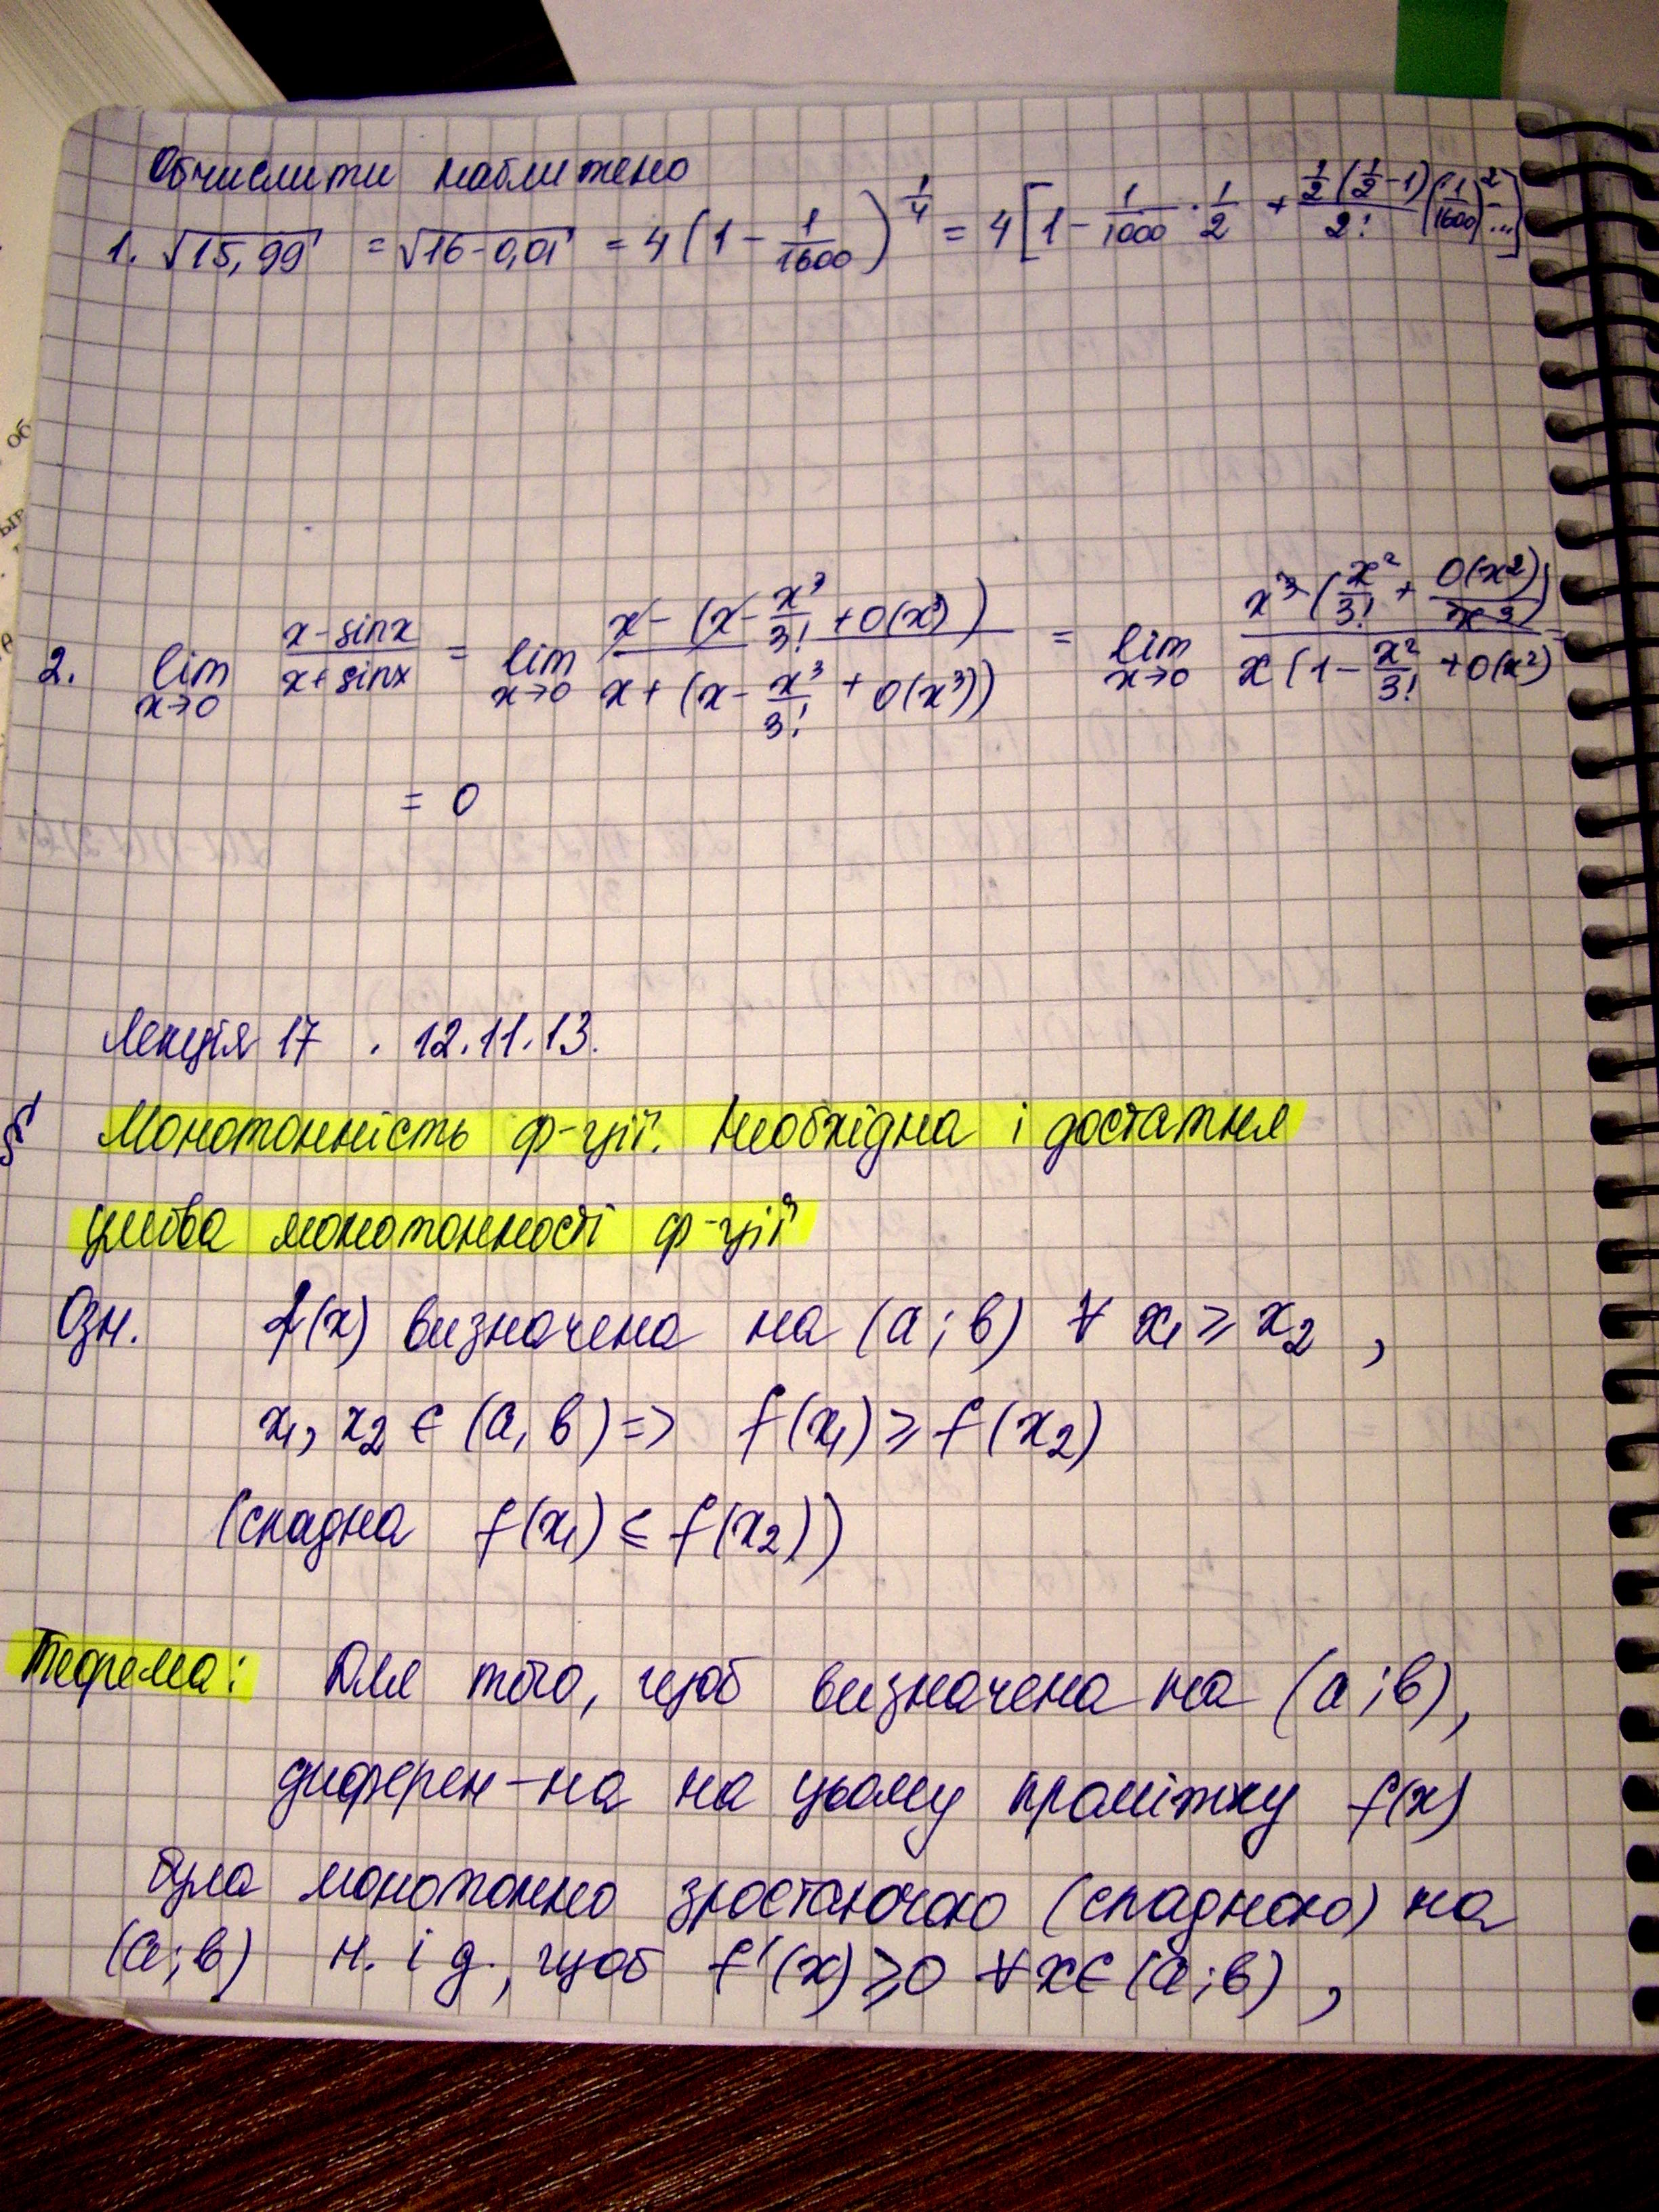 Обчислити наближено
1. √15,99 = √16-0,01 = 4(1 - 1/1600)^(1/4) = 4[1 - 1/1000 · 1/2 + (1/2(1/2-1))/2! (1/1600)^2 - ...]
2. lim x→0 (x-sinx)/(x+sinx) = lim x→0 (x-(x-x³/3!+0(x³)))/(x+(x-x³/3!+0(x³))) = lim x→0 (x³(x²/3!+0(x²)/x³))/(x(1-x²/3!+0(x²)) =
= 0
Лекція 17 . 12.11.13.
§ Монотонність ф-ції. Необхідна і достатня
умова монотонності ф-ції
Озн. f(x) визначена на (a;b) ∀ x₁ ⩾ x₂ ,
x₁, x₂ ∈ (a, b) => f(x₁) ⩾ f(x₂)
(спадна f(x₁) ⩽ f(x₂))
Теорема: Для того, щоб визначена на (a;b),
диферен-на на цьому проміжку f(x)
була монотонно зростаючою (спадною) на
(a;b) н. і д., щоб f'(x) ⩾ 0 ∀x∈(a;b) ,